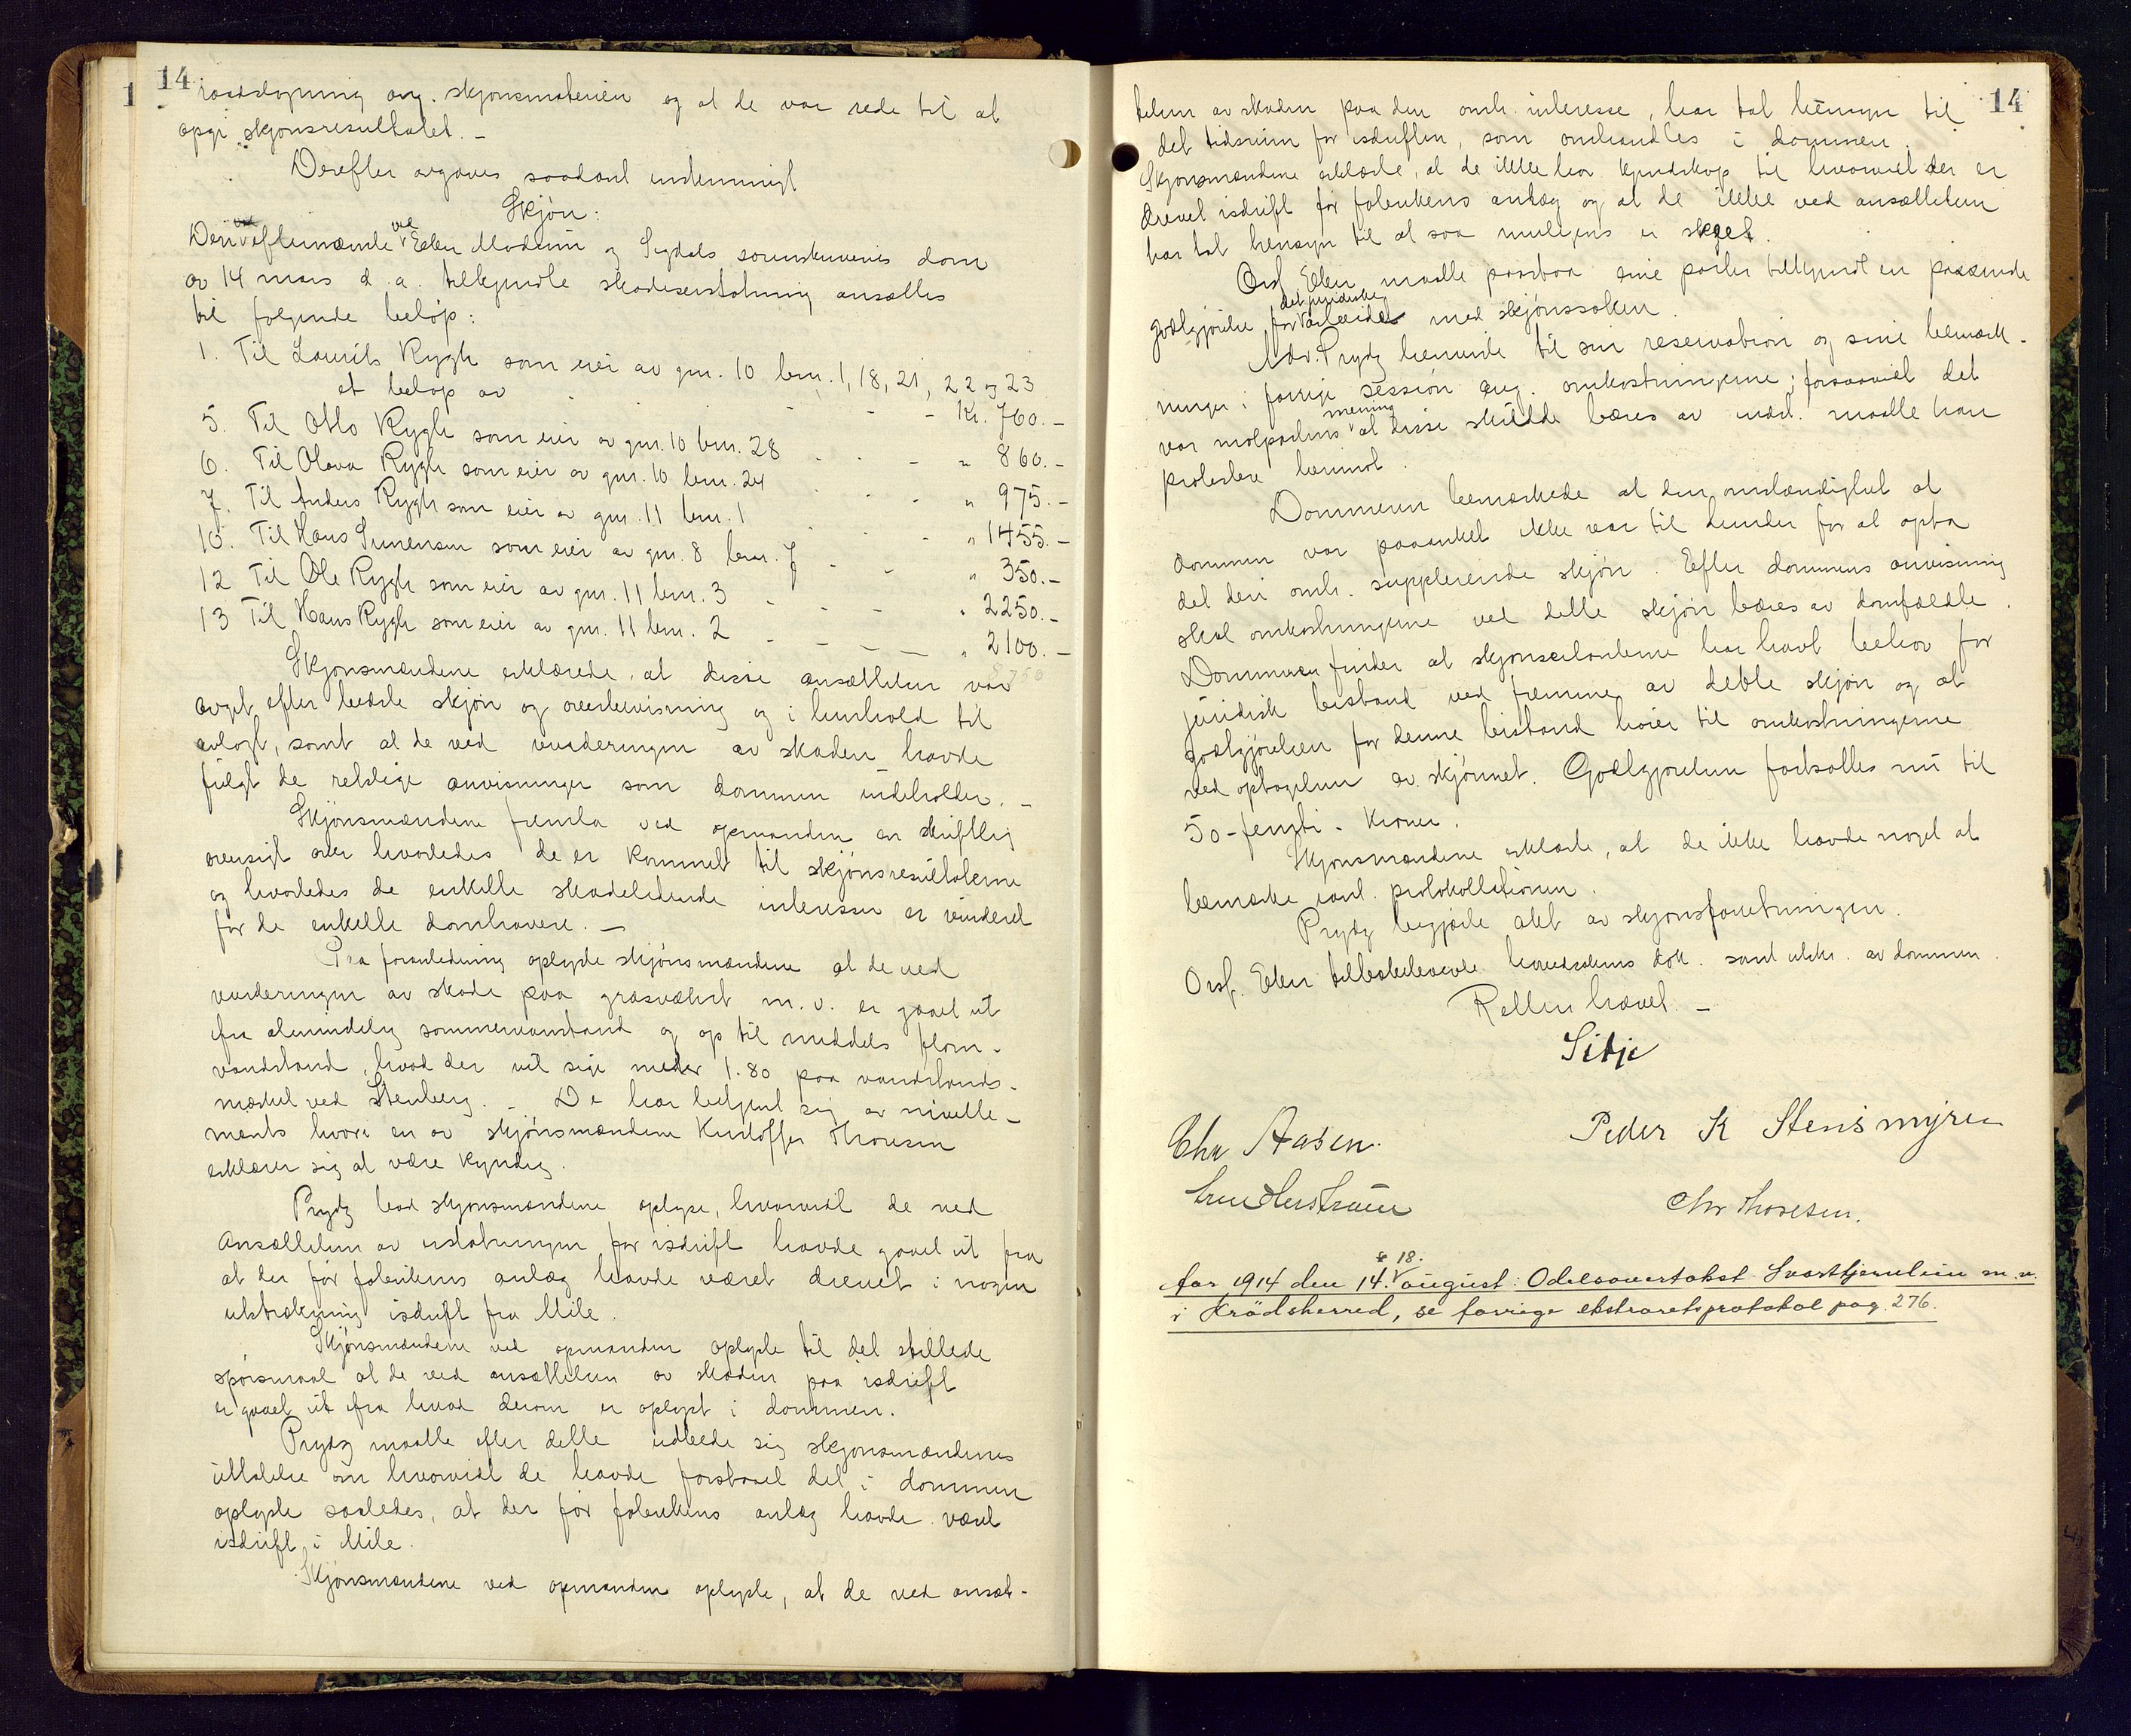 14
raadslagning ang. skjønsmaterien og at de var rede til at
opgi skjønsresultatet. –
Derefter avgaves saadant enstemmigt
Skjøn:
Den ved efternævnte ved Eiker Modum og Sigdals sorenskriveris dom
av 14 mars d. a. tilkjendte skadeserstatning ansættes
til følgende beløp:
1. Til Laurits Rygh som eier av gnr. 10 brnr. 1, 18, 21, 22 og 23
et beløp av - - - - Kr. 760. –
5. Til Otto Rygh som eier av gnr. 10 brnr. 28 - - - " 860. –
6. Til Olava Rygh som eier av gnr. 10 brnr. 24 - - - " 975. –
7. Til Anders Rygh som eier av gnr. 11 brnr. 1 - - - " 1455. –
10. Til Hans Simensen som eier av gnr. 8 brnr. 7 - - - " 350. –
12 Til Ole Rygh som eier av gnr. 11 brnr. 3 - - - " 2250. –
13 Til Hans Rygh som eier av gnr. 11 brnr. 2 - - - " 2100. –
Skjønsmændene erklærede, at disse ansættelser var
avgit efter bedste skjøn og overbevisning og i henhold til
avlagt, samt at de ved vurderingen av skaden havde
fulgt de retslige anvisninger som dommen indeholder. –
Skjønsmændene fremla ved opmanden en skriftlig
oversigt over hvorledes de er kommet til skjønsresultaterne
og hvorledes de enkelte skadelidende interesser er vurderet
for de enkelte domhavere. –
Paa foranledning oplyste skjønsmændene at de ved
vurderingen av skade paa græsvækst m. v. er gaaet ut
ifra almindelig sommervandstand og op til middels flom-
vandstand, hvad der vil sige meter 1.80 paa vandstands-
mærket ved Stenberg. – De har betjent sig av nivelle-
ments hvori en av skjønsmændene Kristoffer Thoresen
erklærer sig at være kyndig.
Prydz bad skjønsmændene oplyse, hvorvidt de ved
Ansættelsen av erstatningen for isdrift havde gaaet ut fra
at der før fabrikens anlæg havde været drevet i nogen
utstrækning isdrift fra Mile.
Skjønsmændene ved opmanden oplyste til det stillede
spørsmaal at de ved ansættelsen av skaden paa isdrift
er gaaet ut ifra hvad derom er oplyst i dommen.
Prydz maatte efter dette utbede sig skjønsmændenes
uttalelse om hvorvidt de havde forstaaet det i dommen
oplyste saaledes, at der før fabrikens anlæg havde været
isdrift i Mile.
Skjønsmændene ved opmanden oplyste, at de ved ansæt-
14
telsen av skaden paa den omh. interesse, har tat hensyn til
det tidsrum for isdriften, som omhandles i dommen.
Skjønsmændene erklærte, at de ikke har kjendskap til hvorvidt der er
drevet isdrift før fabrikens anlæg og at de ikke ved ansættelsen
har tat hensyn til at saa muligens er skeet.
Orsf. Eken maatte paastaa sine parter tilkjendt en passende
godtgjørelse for det juridiske arbeide med skjønssaken.
Adv. Prydz henviste til sin reservation og sine bemærk-
ninger i forrige session ang. omkostningerne; forsaavidt det
var motpartens mening at disse skulde bæres av indst. maatte han
protestere herimot.
Dommeren bemærkede at den omstændighet at
dommen var paaanket ikke var til hinder for at opta
det den omh. supplerende skjøn. Efter dommens anvisning
skal omkostningerne ved dette skjøn bæres av domfældte.
Dommeren finder at skjønserlanterne har havt behov for
juridisk bistand ved fremme av dette skjøn og at
godtgjørelsen for denne bistand hører til omkostningerne
ved optagelsen av skjønnet. Godtgjørelsen fastsattes nu til
50 - femti - Kroner.
Skjønsmændene erklærte, at de ikke havde noget at
bemærke anl. protokollationen.
Prydz begjærte akt av skjønsforretningen.
Orsf. Eken tilbakeleverte hovedsakens dok. samt utskr. av dommen.
Retten hævet. –
Sitje
Chr Aasen.
Peder K Stensmyren
Chr Thoresen.
Aar 1914 den 14. & 18. august: Odelsovertakst Svarttjernlien m.v.
i Krødsherred, se forrige ekstraretsprotokol pag. 276.